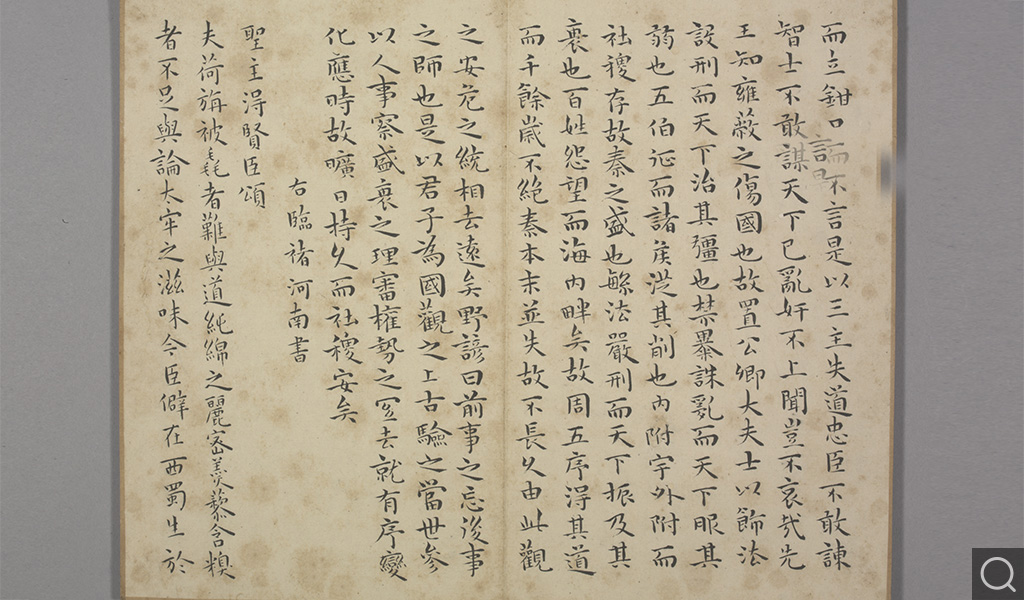 而立鉗口而不言是以三主失道忠臣不敢諫
智士不敢謀天下已亂奸不上聞豈不哀哉先
王知雍蔽之傷國也故置公卿大夫士以飾法
設刑而天下治其彊也禁暴誅亂而天下服其
弱也五伯征而諸侯從其削也内附宇外附而
社稷存故秦之盛也繁法嚴刑而天下振及其
衰也百姓怨望而海内畔矣故周五序得其道
而千餘歲不絕秦本末並失故不長久由此觀
之安危之統相去遠矣野諺曰前事之忘後事
之師也是以君子為國觀之上古驗之當世參
以人事察盛衰之理審權勢之宜去就有序變
化應時故曠日持久而社稷安矣
右臨褚河南書
聖主得賢臣頌
夫荷旃被毳者難與道純綿之麗密羹藜含糗
者不足與論太牢之滋味今臣僻在西蜀生於